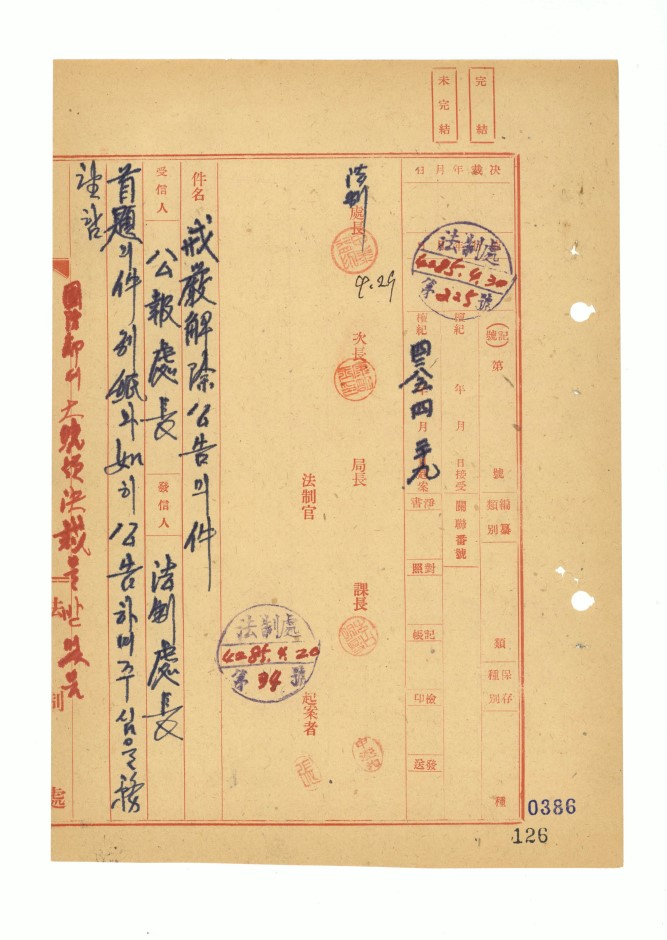 完結
未完結
決裁年月日
法制處
4285.4.30
第225號
(記號)第 號
檀紀 年 月 日接受
關聯番號
編纂類別 類
保存種別 種
檀紀 四二八五年四月二九日起案
淨書
對照
記帳
檢印
發送
法制處長
9.29
次長
局長
課長
法制官
起案者
法制處
4285.4.20
第94號
件名 戒嚴解除公告의件
受信人 公報處長 發信人 法制處長
首題의件別紙와如히公告하여주심을務
望함
法制處
0386
126